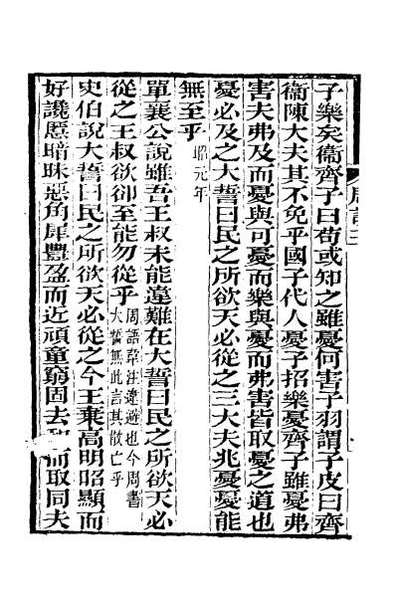 子樂矣衞齊子曰苟或知之雖憂何害子羽謂子皮曰齊
衞陳大夫其不免乎國子代人憂子招樂憂齊子雖憂弗
害夫弗及而憂與可憂而樂與憂而弗害皆取憂之道也
憂必及之大誓曰民之所欲天必從之三大夫兆憂憂能
無至乎昭元年
單襄公說雖吾王叔未能違難在大誓曰民之所欲天必
從之王叔欲卻至能勿從乎周語韋注違避也今周書
大誓無此言其散亡乎
史伯說大誓曰民之所欲天必從之今王棄高明昭顯而
好讒慝暗昧惡角犀豐盈而近頑童窮固去而取同夫